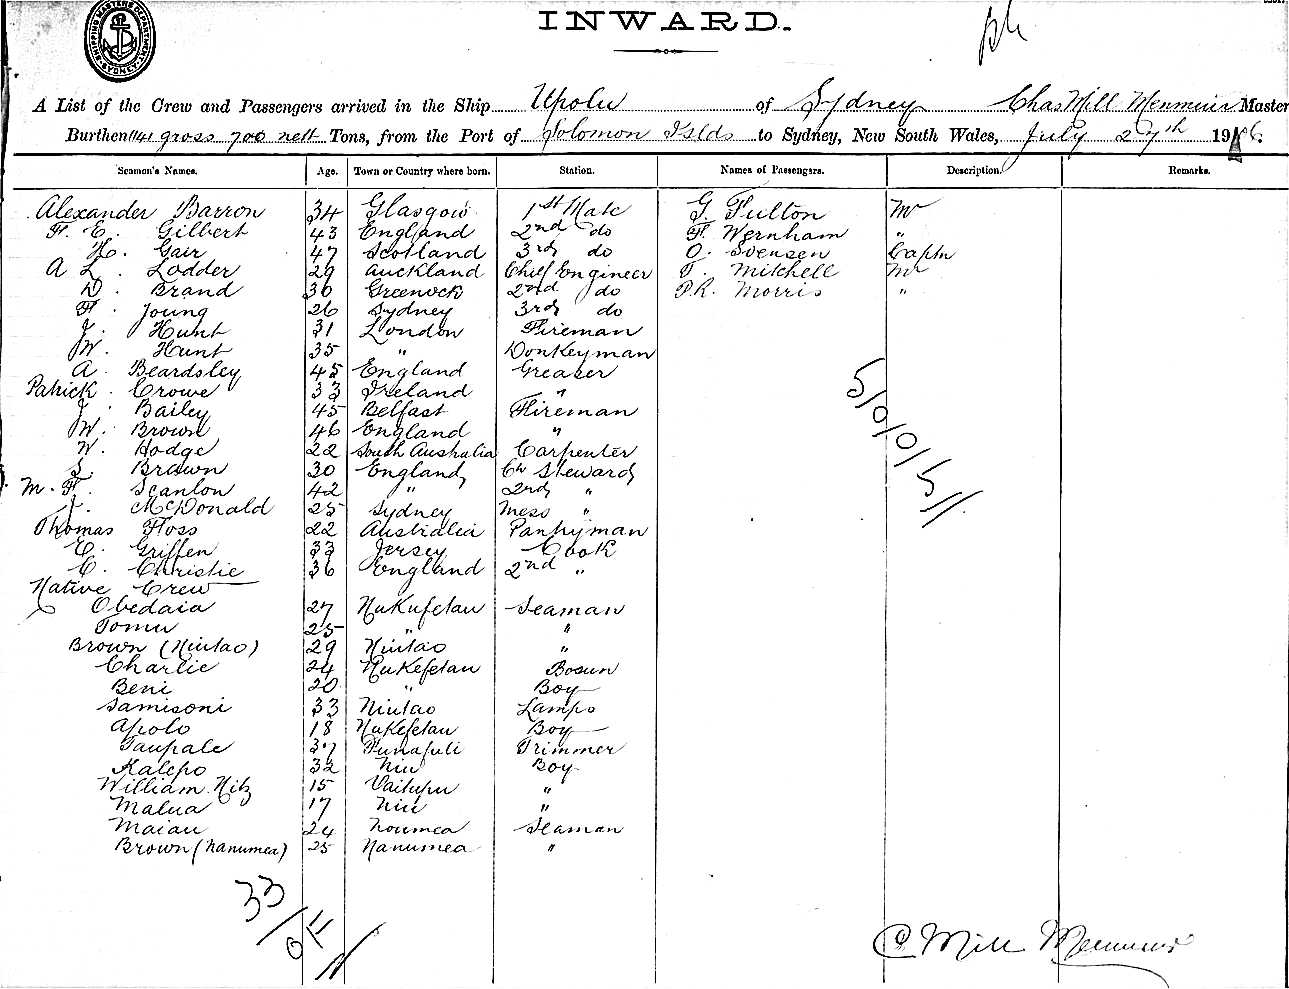 SHIPPING MASTERS DEPARTMENT SYDNEY
INWARD.
A List of the Crew and Passengers arrived in the Ship Upolu of Sydney Chas Mill Menmuir Master
Burthen 1141 gross 700 nett Tons, from the Port of Solomon Islds to Sydney, New South Wales, July 27th 19
Seamen's Names. Age. Town or Country where born. Station. Names of Passengers. Description. Remarks.
Alexander Barron 34 Glasgow 1st Mate G. Fulton Mr
F. E. Gilbert 43 England 2nd do F. Wernham "
H. Gair 47 Scotland 3rd do O. Svensen Captn
A L. Lodder 29 Auckland Chief Engineer T. Mitchell Mr
D. Brand 36 Greenock 2nd do P.R. Morris "
F. Young 26 Sydney 3rd do
J. Hunt 31 London Fireman
W. Hunt 35 " Donkeyman
A. Beardsley 45 England Greaser
Patrick Crowe 33 Ireland "
J. Bailey 45 Belfast Fireman
W. Brown 46 England "
W. Hodge 22 South Australia Carpenter
S. Brown 30 England Ch Steward
M. F. Scanlon 42 " 2nd "
J. McDonald 25 Sydney Mess "
Thomas Floss 22 Australia Pantryman
E. Griffen 33 Jersey Cook
C. Christie 36 England 2nd "
Native Crew
Obedaia 27 Nukufetau Seaman
Tomu 25 " "
Brown (Niutao) 29 Niutao "
Charlie 24 Nukefetau Bosun
Beni 20 " Boy
Samisoni 33 Niutao Lamps
Apolo 18 Nukefetau Boy
Taupale 37 Funafuti Trimmer
Kalepo 32 Niu Boy
William 15 Vaitupu "
Malua 17 Niu "
Maiau 24 Noumea Seaman
Brown (Nanumea) 25 Nanumea "
5/0/0/5//
33/0
C Mill Menmuir